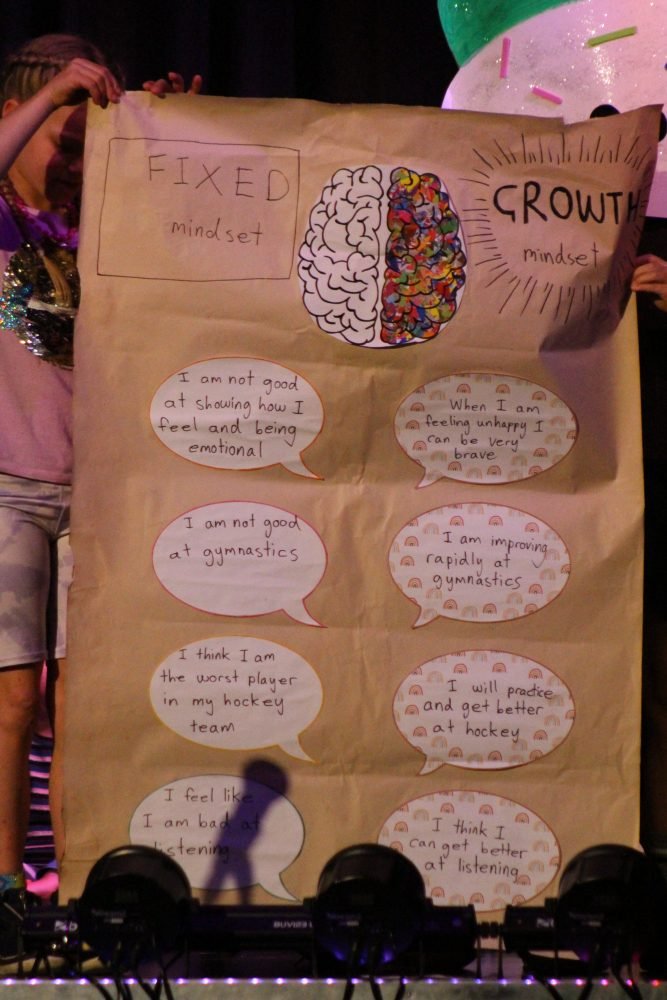 FIXED
mindset
GROWTH
mindset
I am not good
at showing how I
feel and being
emotional
When I am
feeling unhappy I
can be very
brave
I am not good
at gymnastics
I am improving
rapidly at
gymnastics
I think I am
the worst player
in my hockey
team
I will practice
and get better
at hockey
I feel like
I am bad at
listening
I think I
can get better
at listening